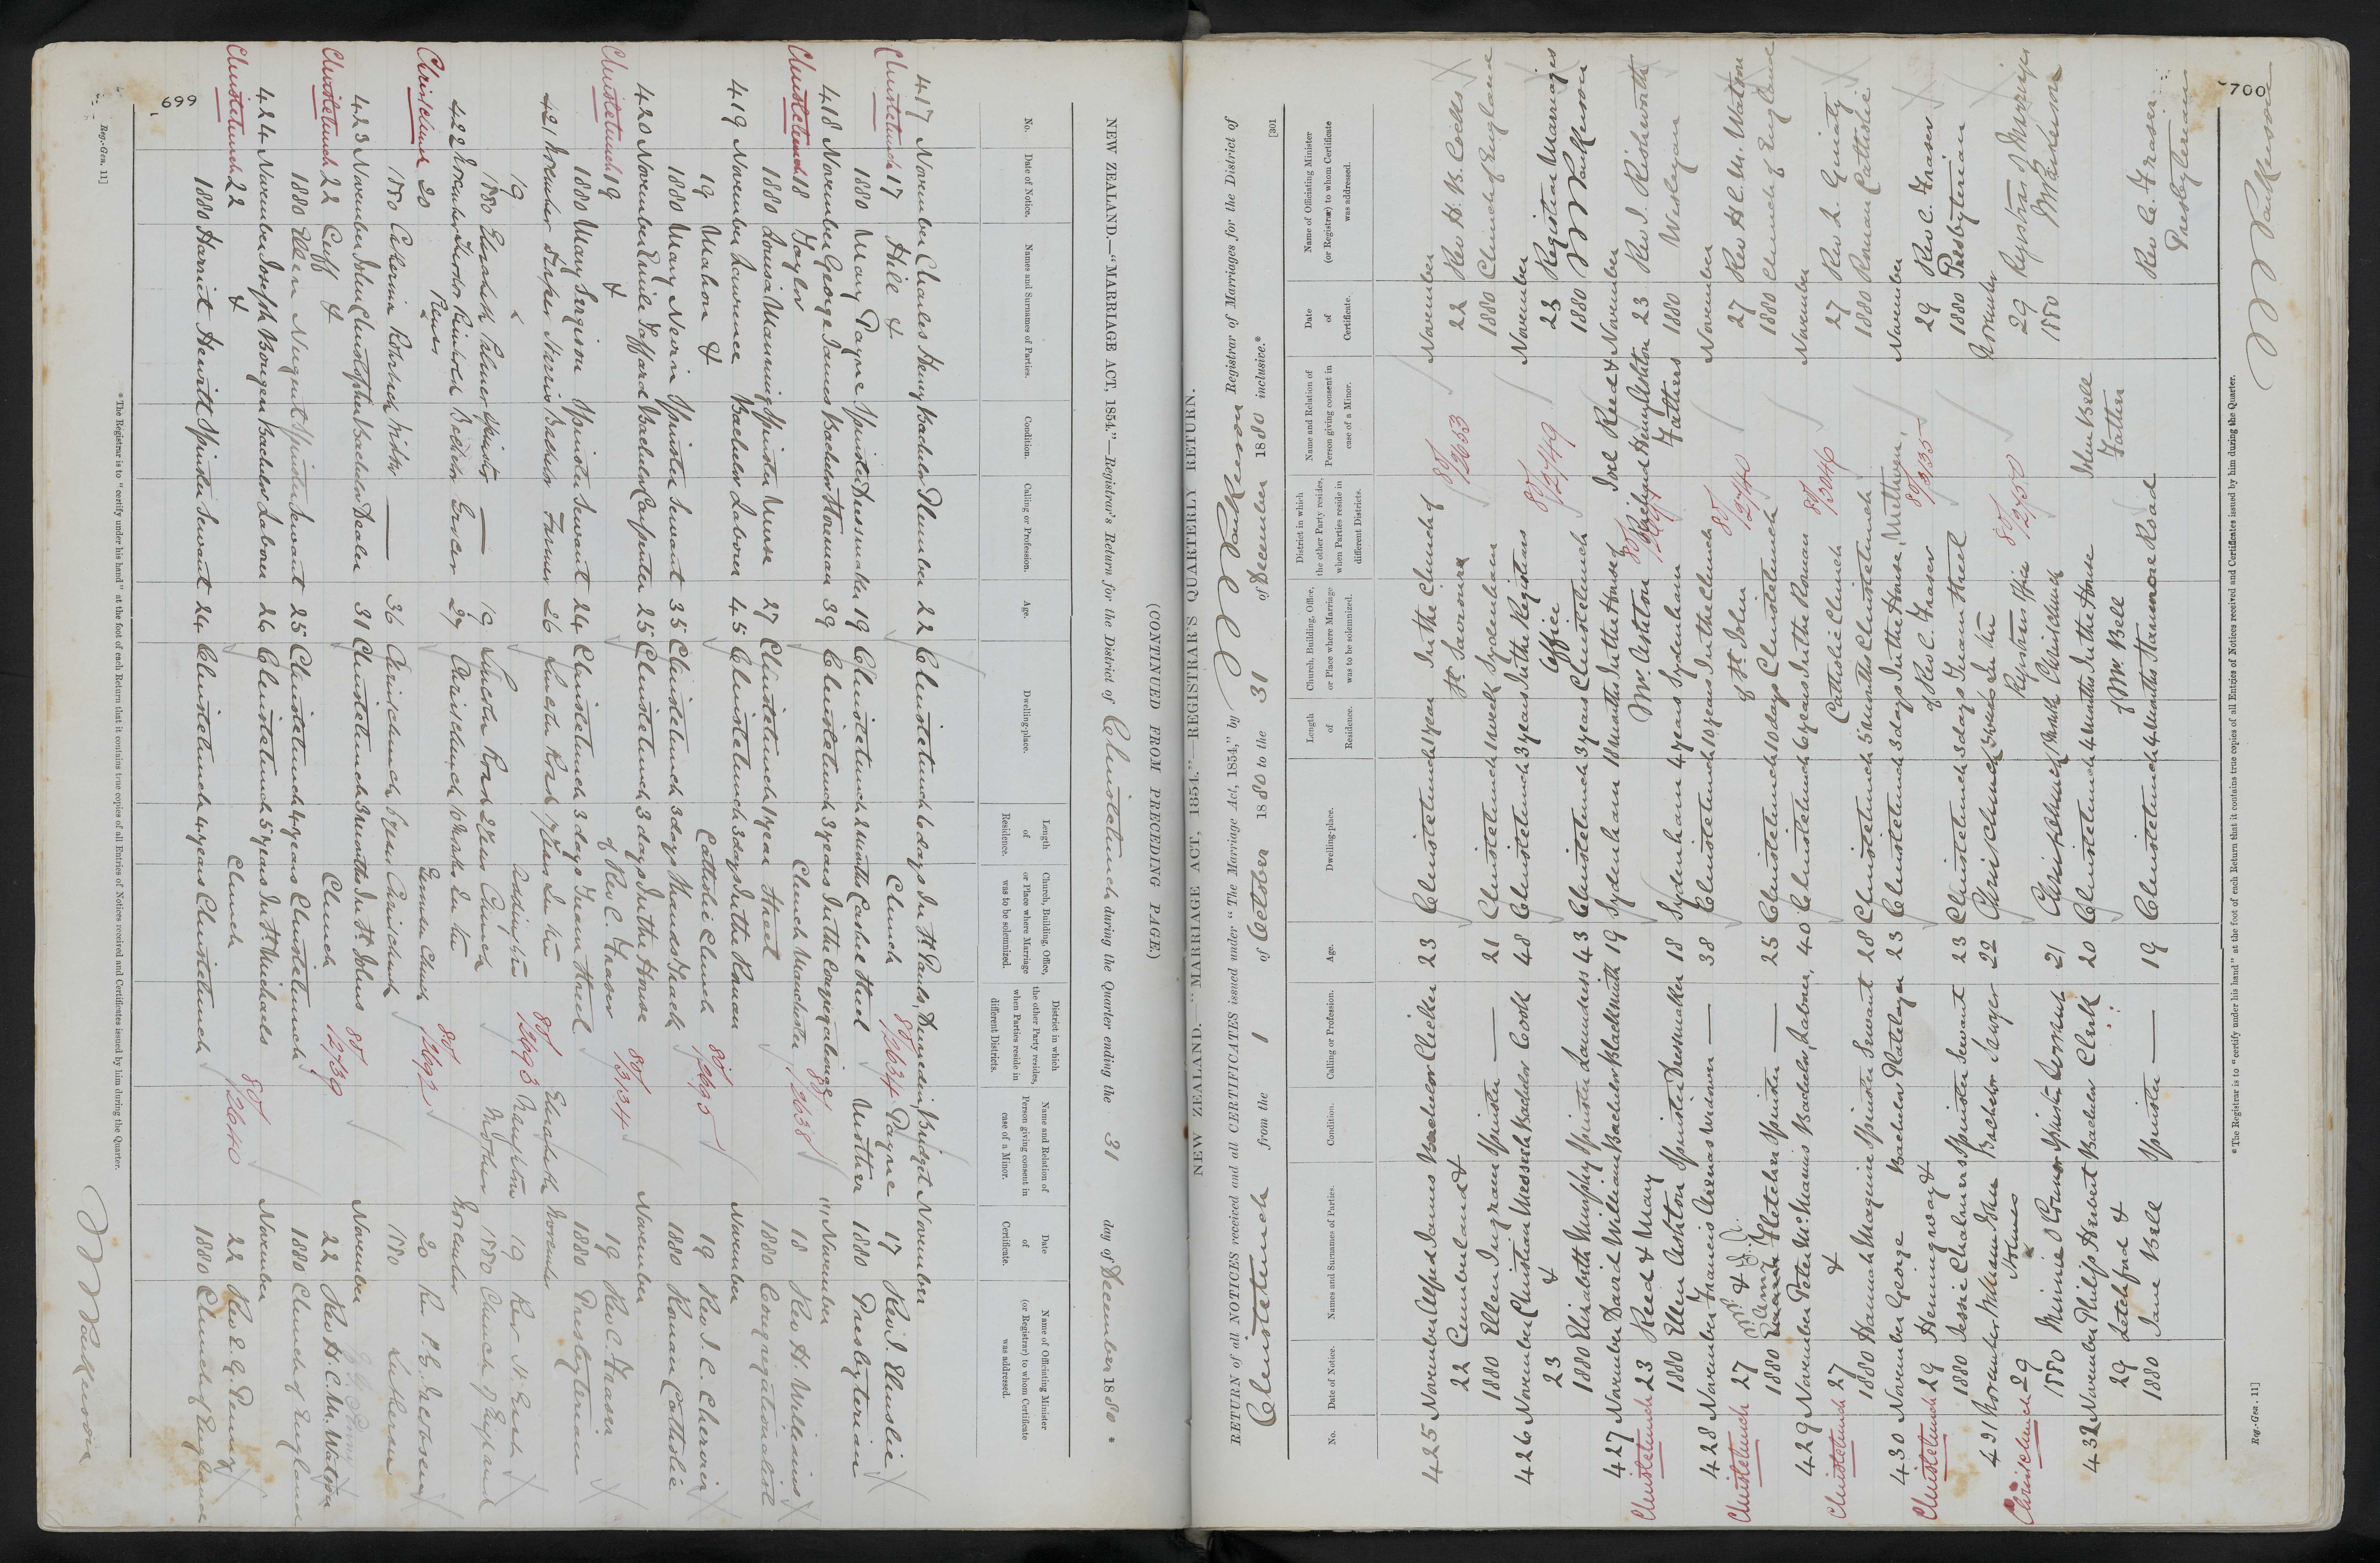 699
NEW ZEALAND.—"MARRIAGE ACT, 1854."—Registrar's Return for the District of Christchurch during the Quarter ending the 31 day of December 1880.
(CONTINUED FROM PRECEDING PAGE.)
No. Date of Notice. Names and Surnames of Parties. Condition. Calling or Profession. Age. Dwelling-place. Length of Residence. Church, Building, Office, or Place where Marriage was to be solemnized. District in which the other Party resides, when Parties reside in different Districts. Name and Relation of Person giving consent in case of a Minor. Date of Certificate. Name of Officiating Minister (or Registrar) to whom Certificate was addressed.
417 November Charles Henry Bachelor Plumber 22 Christchurch 6 days In St Pauls, Dunedin Bridget November
Christchurch 17 Hill & Church 80/2634 Payne 17 Rev J. Elmslie
1880 Mary Payne Spinster Dressmaker 19 Christchurch 2 Months Cashel Street Mother 1880 Presbyterian
418 November George James Bachelor 39 Christchurch 3 years In the Congregational November
Christchurch 18 Taylor Church Manchester 80/2638 18 Rev H. Williams
1880 Louisa Manning Spinster Nurse 27 Christchurch 1 year Street 1880 Congregationalist
419 November Laurence Bachelor Laborer 45 Christchurch 3 days In the Roman November
19 Mahon & Catholic Church 80/2695 19 Rev J. C. Chervier
1880 Mary Nevin Spinster Servant 35 Christchurch 3 days 1880 Roman Catholic
420 November Emile Bachelor Carpenter 25 Christchurch 3 days In the House November
Christchurch 19 & of Rev C. Fraser 80/3134 19 Rev C. Fraser
1880 Mary Sergison Spinster Servant 24 Christchurch 3 days Tuam Street 1880 Presbyterian
421 November Harris Bachelor Farmer 26 Lincoln Road 7 Years In the Elizabeth November
19 & Addington 80/2693 19 Rev
1880 Elizabeth Palmer Spinster — 19 Lincoln Road 2 Years Church Mother 1880 Church of England
422 November Reinhold Bachelor Grocer 29 Christchurch 10 Weeks In the November
Christchurch 20 German Church 80/2692 20 Rev
1880 Catherina Spinster — 36 Christchurch 6 years Christchurch 1880 Lutheran
423 November John Christopher Bachelor Dealer 31 Christchurch 3 Months In St Johns 80/2739 November
Christchurch 22 Cuff & Church 22 Rev H. C. M. Watson
1880 Ellen Nugent Spinster Servant 25 Christchurch 4 years Christchurch 1880 Church of England
424 November Joseph Bachelor Laborer 26 Christchurch 5 years In St Michaels November
Christchurch 22 & Church 80/2640 22 Rev
1880 Harriet Hewitt Spinster Servant 24 Christchurch 4 years Christchurch 1880 Church of England
* The Registrar is to "certify under his hand" at the foot of each Return that it contains true copies of all Entries of Notices received and Certificates issued by him during the Quarter.
Reg.-Gen. 11]
700
[301
NEW ZEALAND.—"MARRIAGE ACT, 1854."—REGISTRAR'S QUARTERLY RETURN.
RETURN of all NOTICES received and all CERTIFICATES issued under "The Marriage Act, 1854," by Registrar of Marriages for the District of
Christchurch from the 1 of October 1880 to the 31 of December 1880 inclusive.*
No. Date of Notice. Names and Surnames of Parties. Condition. Calling or Profession. Age. Dwelling-place. Length of Residence. Church, Building, Office, or Place where Marriage was to be solemnized. District in which the other Party resides, when Parties reside in different Districts. Name and Relation of Person giving consent in case of a Minor. Date of Certificate. Name of Officiating Minister (or Registrar) to whom Certificate was addressed.
425 November Alfred James Bachelor Clicker 23 Christchurch 1 year In the Church of November
22 Cumberland & St Saviours 80/2653 22 Rev H. B. Cocks
1880 Ellen Ingram Spinster — 21 Christchurch 1 week Sydenham 1880 Church of England
426 November Christian Bachelor Cook 48 Christchurch 3 years In the Registrars November
23 & Office 80/2749 23 Registrar Marriages
1880 Elizabeth Murphy Spinster Laundress 43 Christchurch 3 years Christchurch 1880
427 November David William Bachelor Blacksmith 19 Sydenham 18 Months In the House of Joel Reed & November
Christchurch 23 Reed & Mary Mr. Ashton Henry Ashton 23 Rev J. Rishworth
1880 Ellen Ashton Spinster Dressmaker 18 Sydenham 4 years Sydenham Fathers 1880 Wesleyan
428 November Francis Widower — 38 Christchurch 10 years In the Church November
Christchurch 27 & of St John 80/2740 27 Rev H. C. M. Watson
1880 Fletcher Spinster — 25 Christchurch 10 days Christchurch 1880 Church of England
429 November Peter McManus Bachelor Laborer 40 Christchurch 6 years In the Roman November
Christchurch 27 & Catholic Church 80/3046 27 Rev Ginaty
1880 Hannah Maguire Spinster Servant 28 Christchurch 5 Months Christchurch 1880 Roman Catholic
430 November George Bachelor Platelayer 23 Christchurch 3 days In the House Methven November
Christchurch 29 Hemingway & of Rev C. Fraser 80/3135 29 Rev C. Fraser
1880 Jessie Chalmers Spinster Servant 23 Christchurch 3 days Tuam Street 1880 Presbyterian
431 November William John Bachelor 22 Christchurch In the November
Christchurch 29 Holmes & Registrars Office 80/2750 29 Registrar of Marriages
1880 Minnie O'Connor Spinster 21 Christchurch Christchurch 1880
432 November Philip Herbert Bachelor Clerk 20 Christchurch 4 Months In the House John Bell
29 Letchford & of Mr. Bell Father Rev C. Fraser
1880 Jane Bell Spinster — 19 Christchurch 4 Months Stanmore Road Presbyterian
* The Registrar is to "certify under his hand" at the foot of each Return that it contains true copies of all Entries of Notices received and Certificates issued by him during the Quarter.
Reg.-Gen. 11]